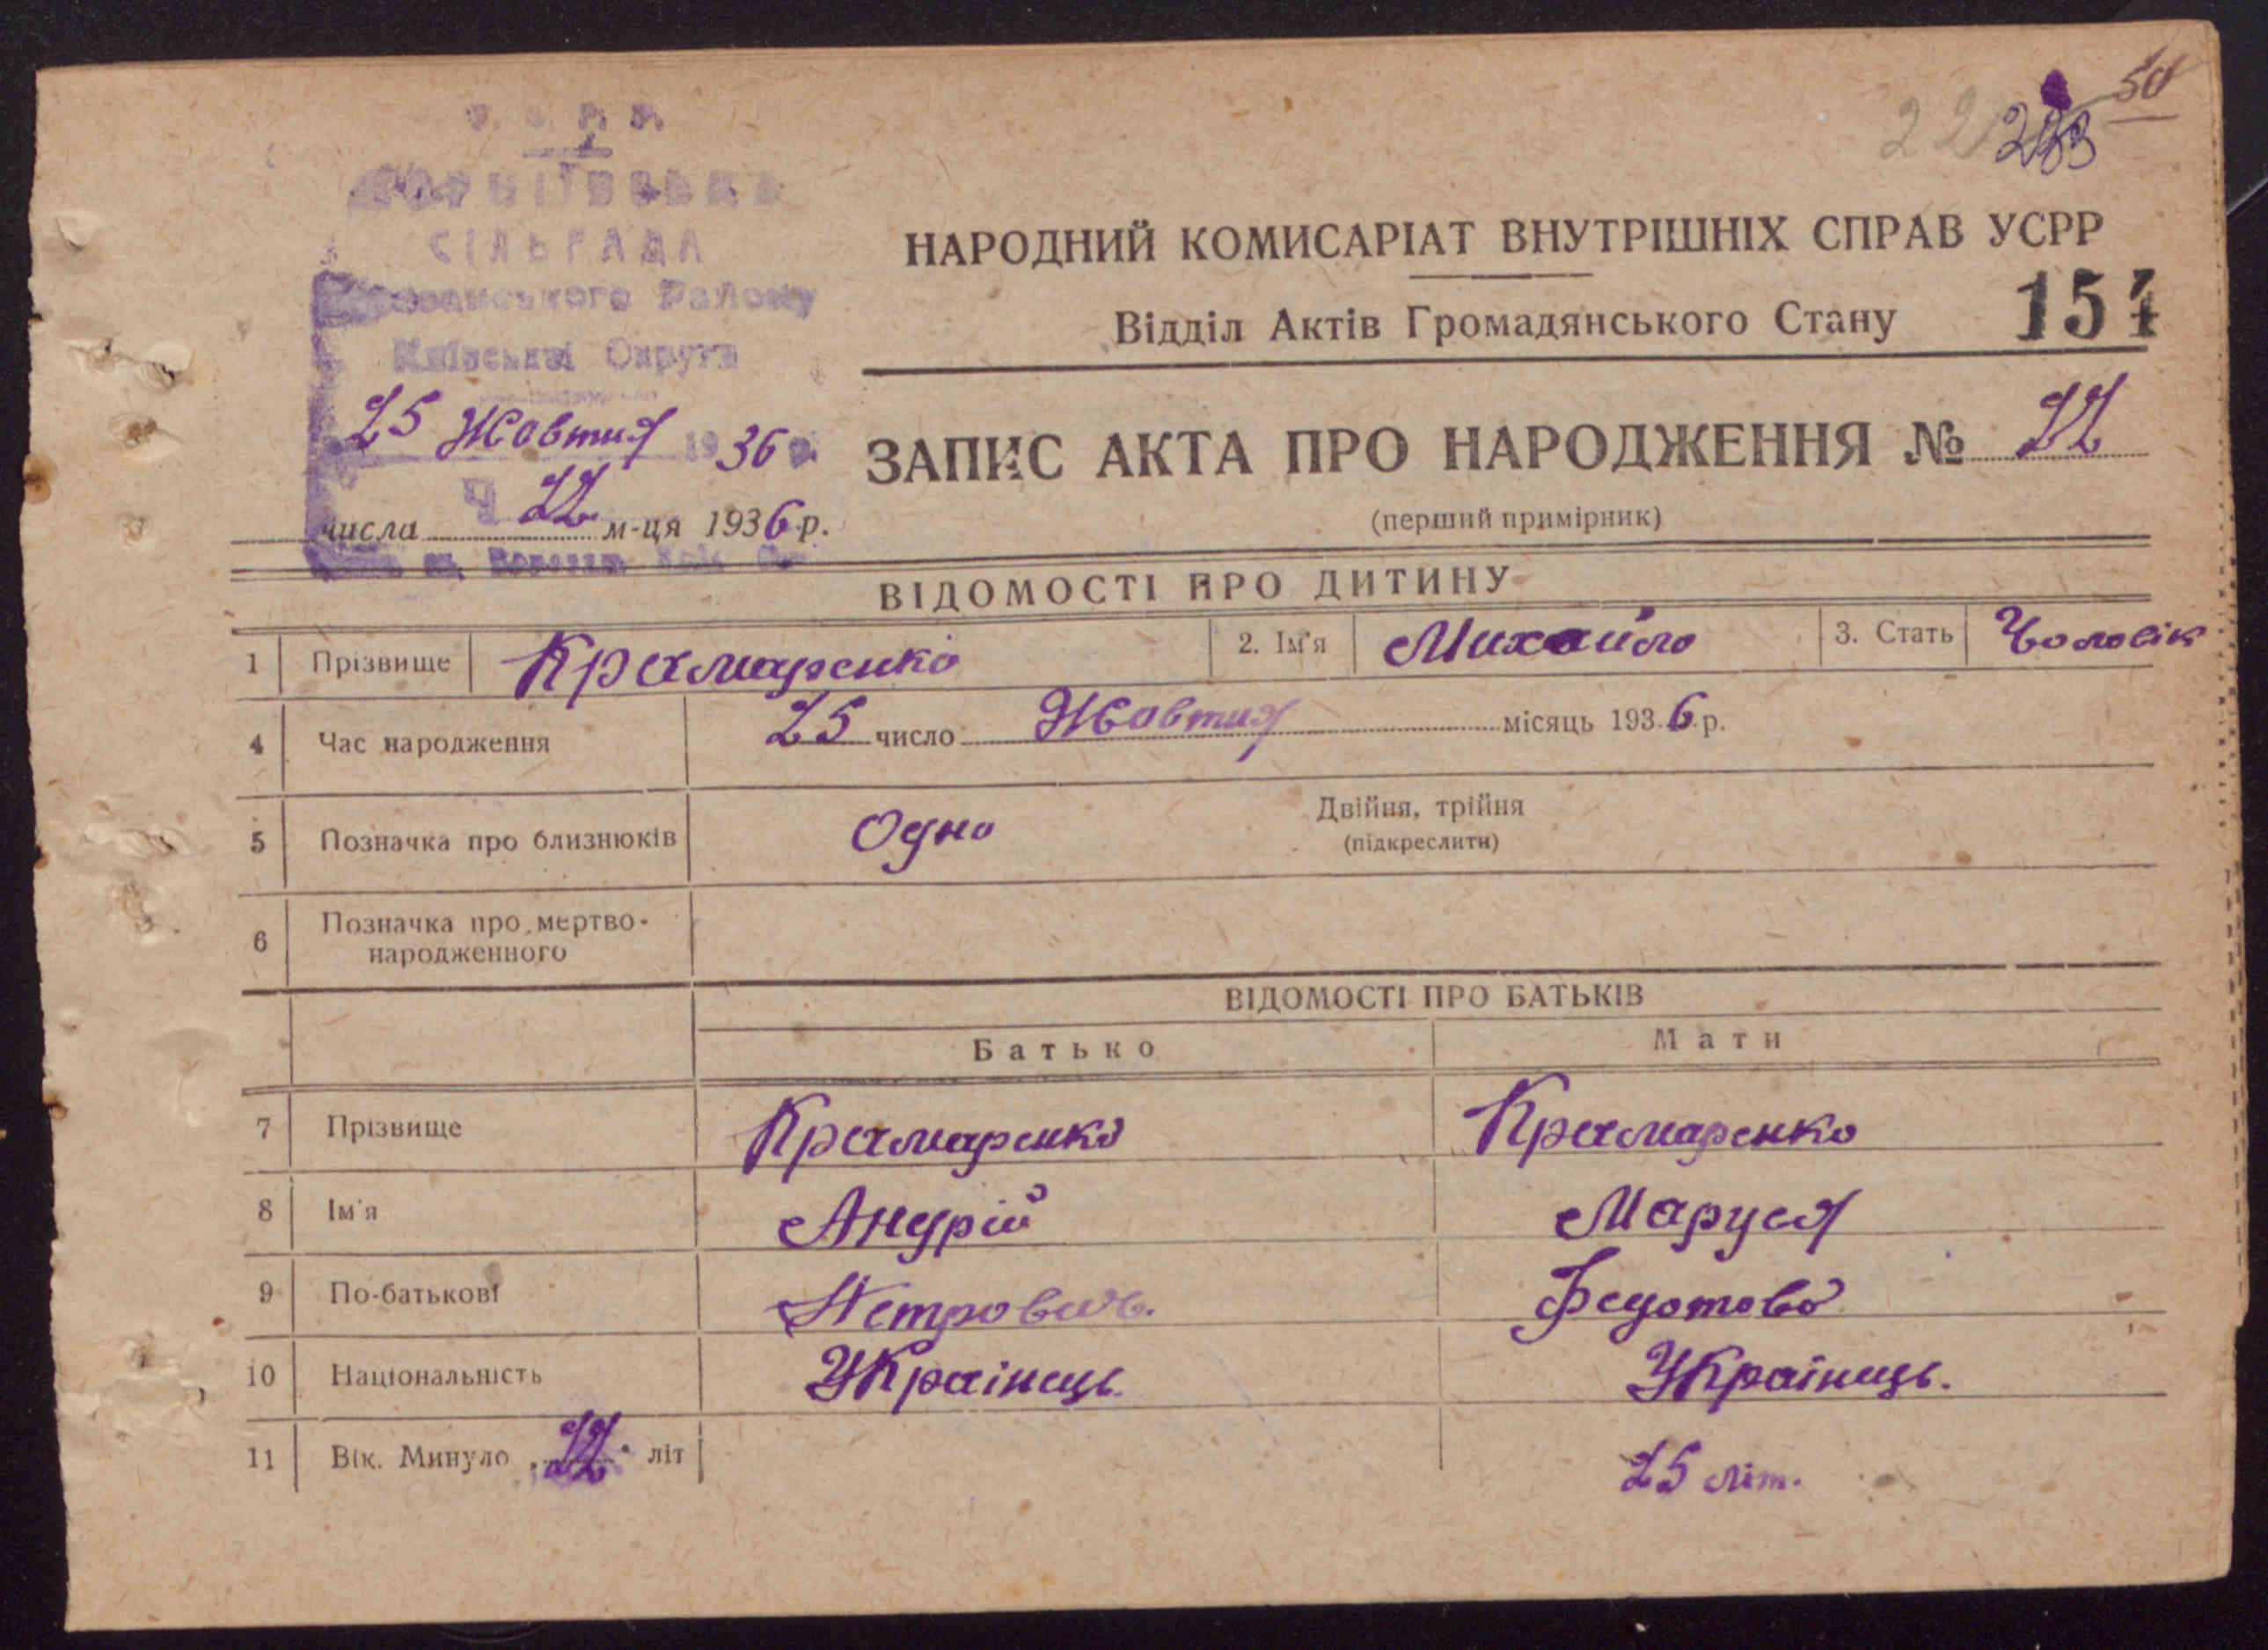 50
22
СІЛЬРАДА
Району
Київської Округи
25 Жовтня 1936 р.
Ч 22
числа м-ця 1936 р.
НАРОДНИЙ КОМИСАРІАТ ВНУТРІШНІХ СПРАВ УСРР
Відділ Актів Громадянського Стану 154
ЗАПИС АКТА ПРО НАРОДЖЕННЯ № 22
(перший примірник)
ВІДОМОСТІ ПРО ДИТИНУ
1 Прізвище Крамаренко 2. Ім'я Михайло 3. Стать Чоловік
4 Час народження 25 число Жовтня місяць 1936 р.
5 Позначка про близнюків Одно Двійня, трійня
(підкреслити)
6 Позначка про мертво-
народженного
ВІДОМОСТІ ПРО БАТЬКІВ
Батько Мати
7 Прізвище Крамаренко Крамаренко
8 Ім'я Андрій Маруся
9 По-батькові Петрович. Федотово
10 Національність Українець Українець.
11 Вік. Минуло 22 літ 25 літ.